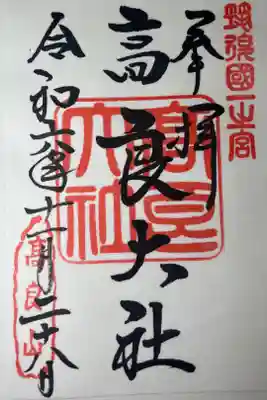 筑後國一之宮
奉拝
高良大社
髙良大社
令和六年十一月二十八日
高良山